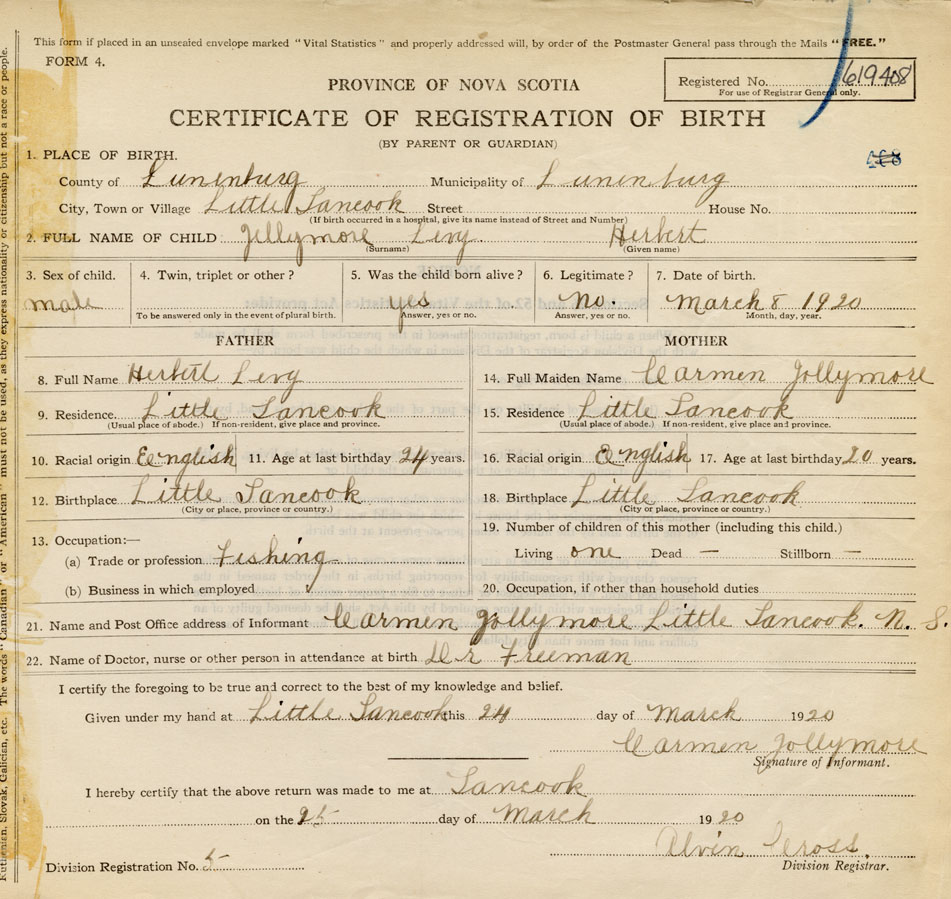 This form if placed in an unsealed envelope marked "Vital Statistics" and properly addressed will, by order of the Postmaster General pass through the Mails "FREE."
FORM 4.
PROVINCE OF NOVA SCOTIA
Registered No. 619408
For use of Registrar General only.
CERTIFICATE OF REGISTRATION OF BIRTH
(BY PARENT OR GUARDIAN)
408
1. PLACE OF BIRTH.
County of Lunenburg Municipality of Lunenburg
City, Town or Village Little Tancook Street House No.
(If birth occurred in a hospital, give its name instead of Street and Number)
2. FULL NAME OF CHILD Jollymore Levy Herbert
(Surname) (Given name)
3. Sex of child. 4. Twin, triplet or other? 5. Was the child born alive? 6. Legitimate? 7. Date of birth.
male yes no. March 8 1920
To be answered only in the event of plural birth. Answer, yes or no. Answer, yes or no. Month, day, year.
FATHER MOTHER
8. Full Name Herbert Levy 14. Full Maiden Name Carmen Jollymore
9. Residence. Little Tancook 15. Residence Little Tancook
(Usual place of abode.) If non-resident, give place and province. (Usual place of abode.) If non-resident, give place and province.
10. Racial origin English 11. Age at last birthday 24 years. 16. Racial origin English 17. Age at last birthday 20 years.
12. Birthplace Little Tancook 18. Birthplace Little Tancook
(City or place, province or country.) (City or place, province or country.)
19. Number of children of this mother (including this child.)
13. Occupation:—
(a) Trade or profession Fishing Living one Dead — Stillborn —
(b) Business in which employed 20. Occupation, if other than household duties
21. Name and Post Office address of Informant Carmen Jollymore Little Tancook. N. S.
22. Name of Doctor, nurse or other person in attendance at birth Dr Freeman
I certify the foregoing to be true and correct to the best of my knowledge and belief.
Given under my hand at Little Tancook this 24 day of March 1920
Carmen Jollymore
Signature of Informant.
I hereby certify that the above return was made to me at Tancook
on the 25 day of March 1920
Alvin Cross.
Division Registration No. 5 Division Registrar.
Ruthenian, Slovak, Galician, etc. The words "Canadian" or "American" must not be used, as they express nationality or citizenship but not a race or people.